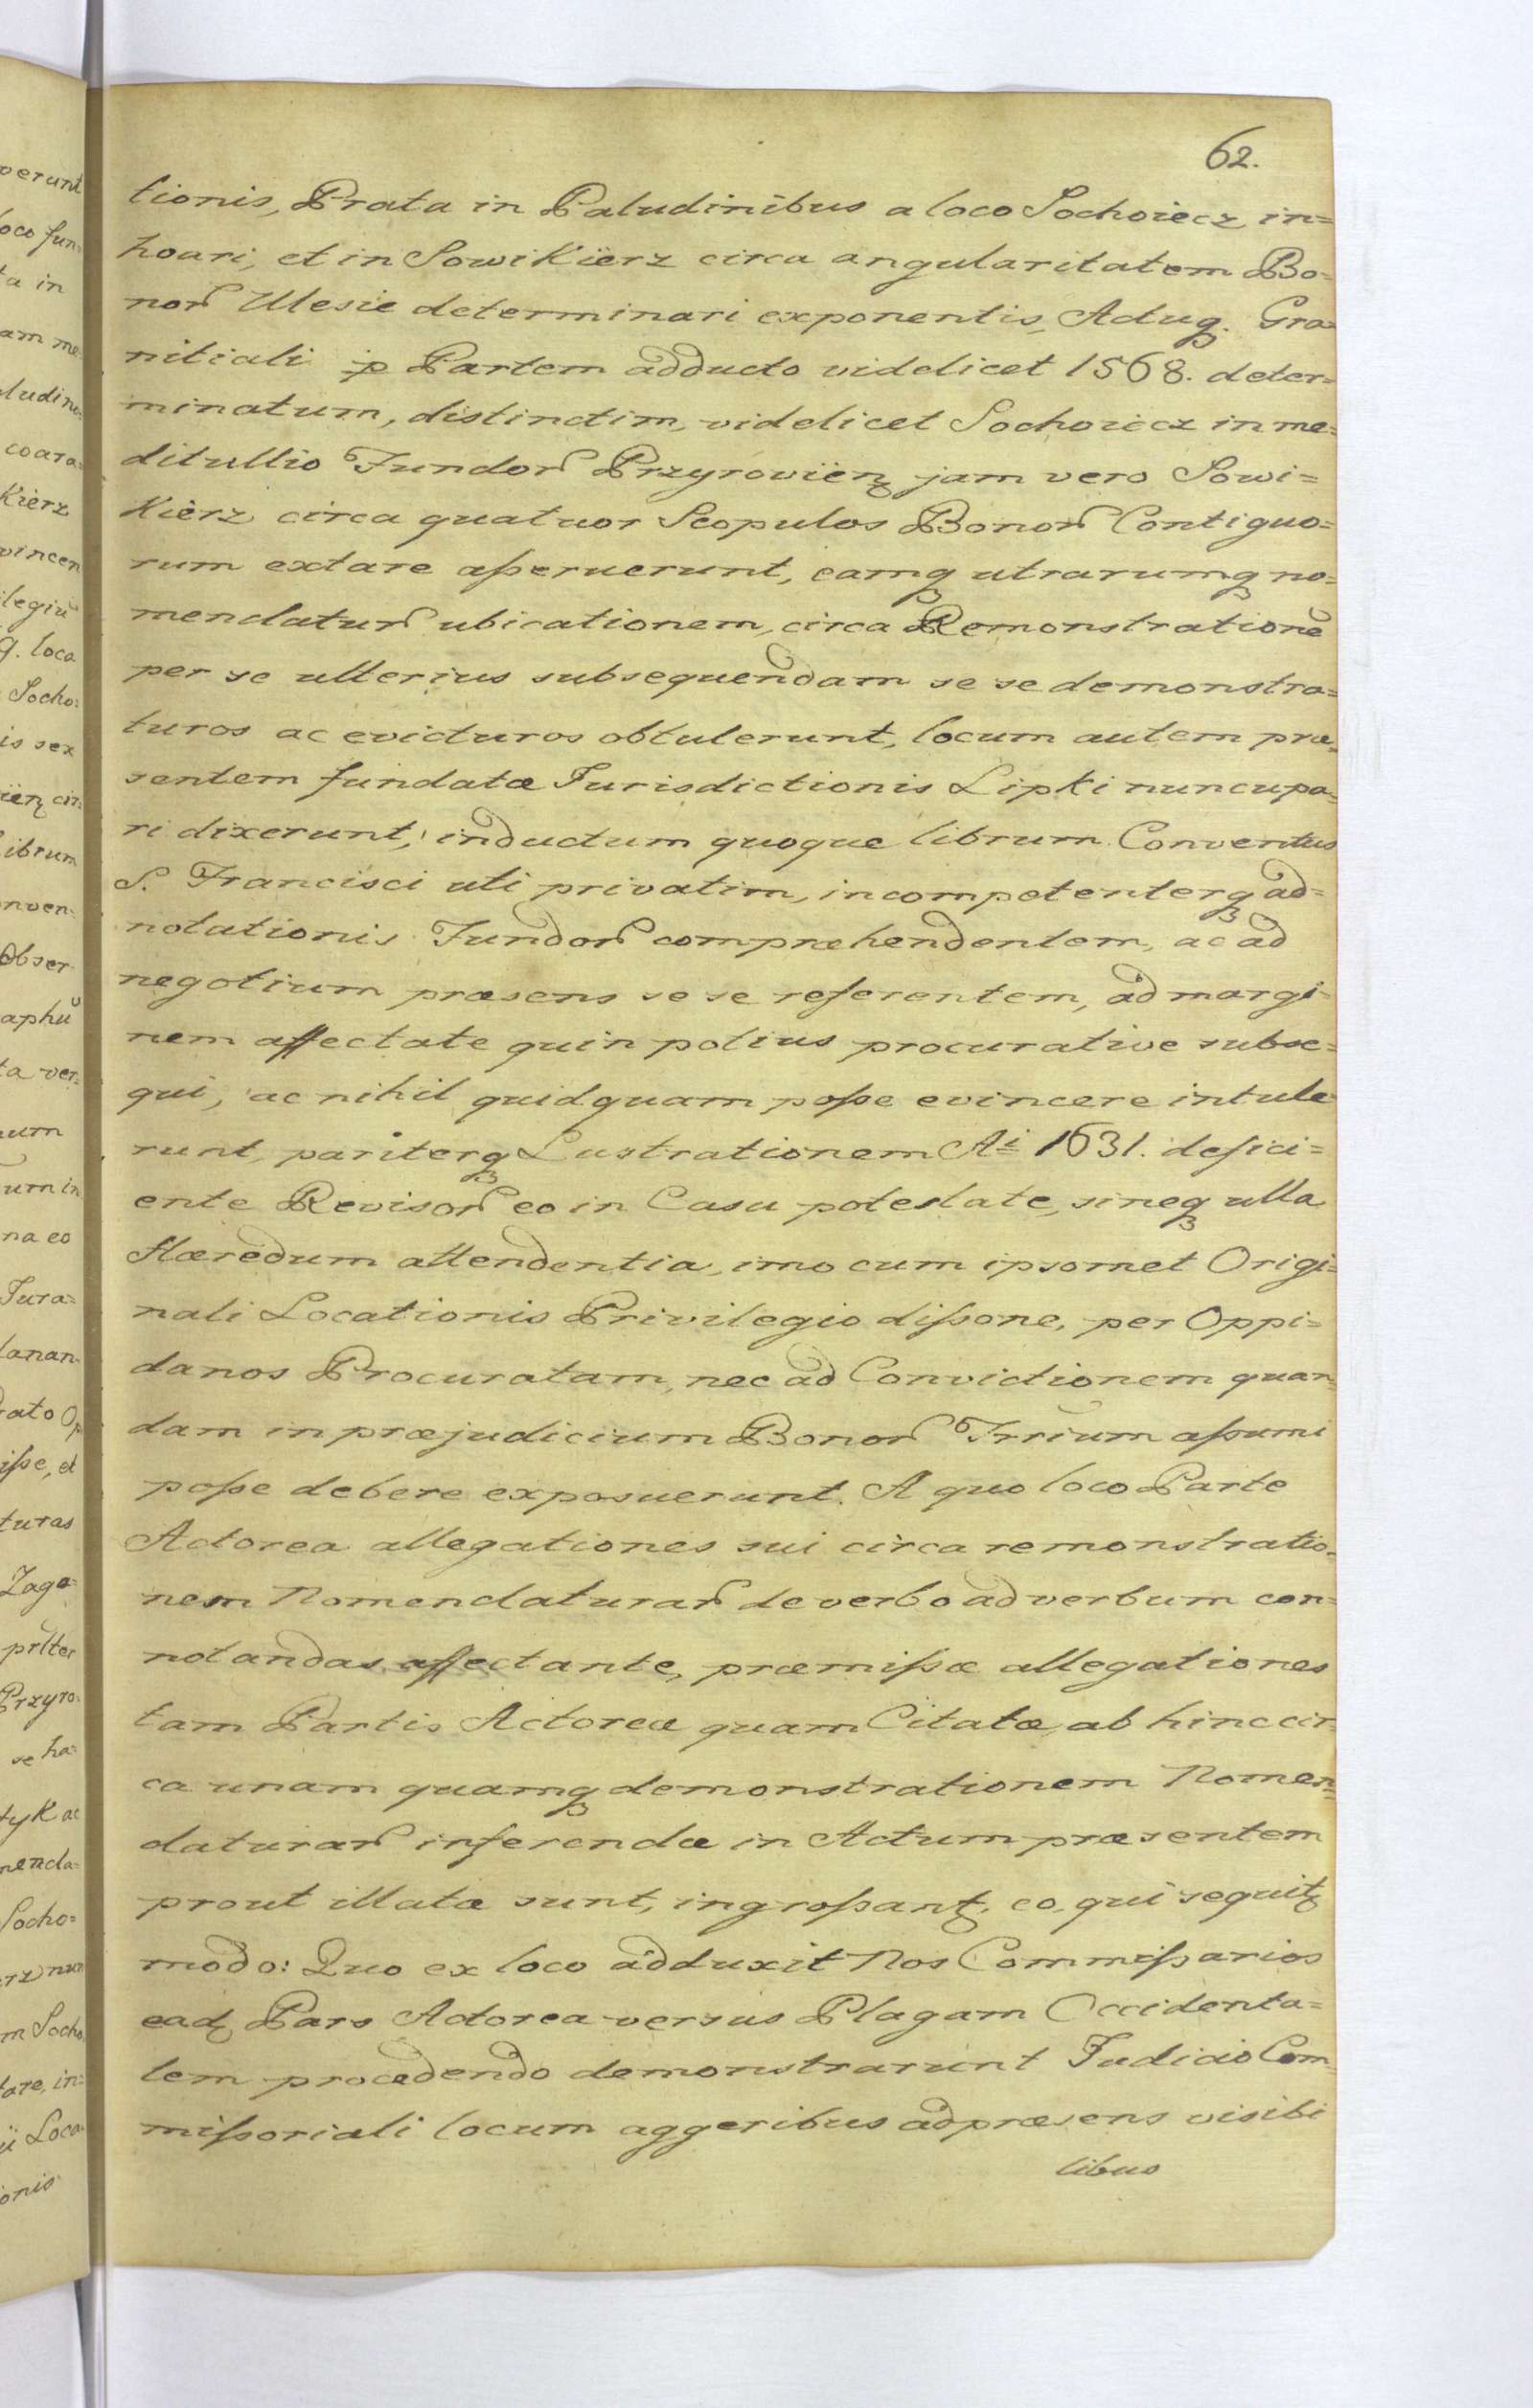 62.
tionis, Prata in Paludinibus a loco Sochoiecz in=
hoari, et in Sowi Kïerz circa angularitatem Bo=
nor Ulesie determinari exponentis, Actuq. Gra=
nitiali p Partem adducto videlicet 1568. deter=
minatum, distinctim, videlicet Sochoiecz in me=
ditullio Fundor Przyrovïen jam vero Sowi=
Kïerz circa quatuor Scopulos Bonor Contiguo=
rum extare aßeruerunt, eamq utrarumq no=
menclatur ubicationem, circa Remonstratione
per se ulterius subsequendam se se demonstra=
turos ac evicturos obtulerunt, locum autem præ=
sentem fundatæ Jurisdictionis Lipki nuncupa=
ri dixerunt, inductum quoque librum Conventus
S. Francisci uti privatim, incompetenterq ad=
notationis Fundor comprehendentem, ac ad
negotium præsens se se referentem, ad margi=
nem affectate quin potius procurative subse=
qui, ac nihil quidquam poße evincere intule
runt, pariterq Lustrationem Ai 1631. defici=
ente Revisor eo in Casu potestate, sineq ulla
Hæredum attendentia, imo cum ipsomet Origi=
nali Locationis Privilegio dißone, per Oppi=
danos Procuratam, nec ad Convictionem quan=
dam in præjudicium Bonor Trrium aßumi
poße debere exposuerunt. A quo loco Parte
Actorea allegationes sui circa remonstratio=
nem Nomenclaturar de verbo ad verbum con=
notandas affectante, præmißæ allegationes
tam Partis Actoreæ quam Citatæ, ab hinc cir
ca unam quamq demonstrationem Nomen=
claturar inferendæ in Actum præsentem
prout illatæ sunt, ingroßant, eo, qui sequit
modo: Quo ex loco adduxit Nos Commißarios
ead Pars Actorea versus Plagam Occidenta=
lem procedendo demonstrarunt Judicio Com
mißoriali locum aggeribus ad præsens visibi
libus